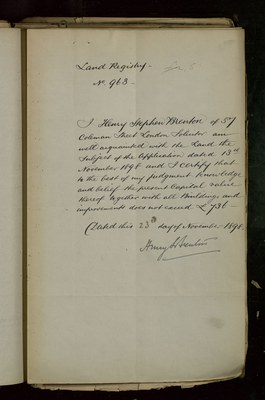 Land Registry.
No 963.
I Henry Stephen Brenton of 57
Coleman Street London Solicitor am
well acquainted with the Land the
Subject of the Application dated 13th
November 1898 and I certify that
to the best of my judgment knowledge
and belief the present Capital value
thereof together with all Buildings and
improvements does not exceed £736
Dated this 23rd day of November 1898.
Henry S Brenton